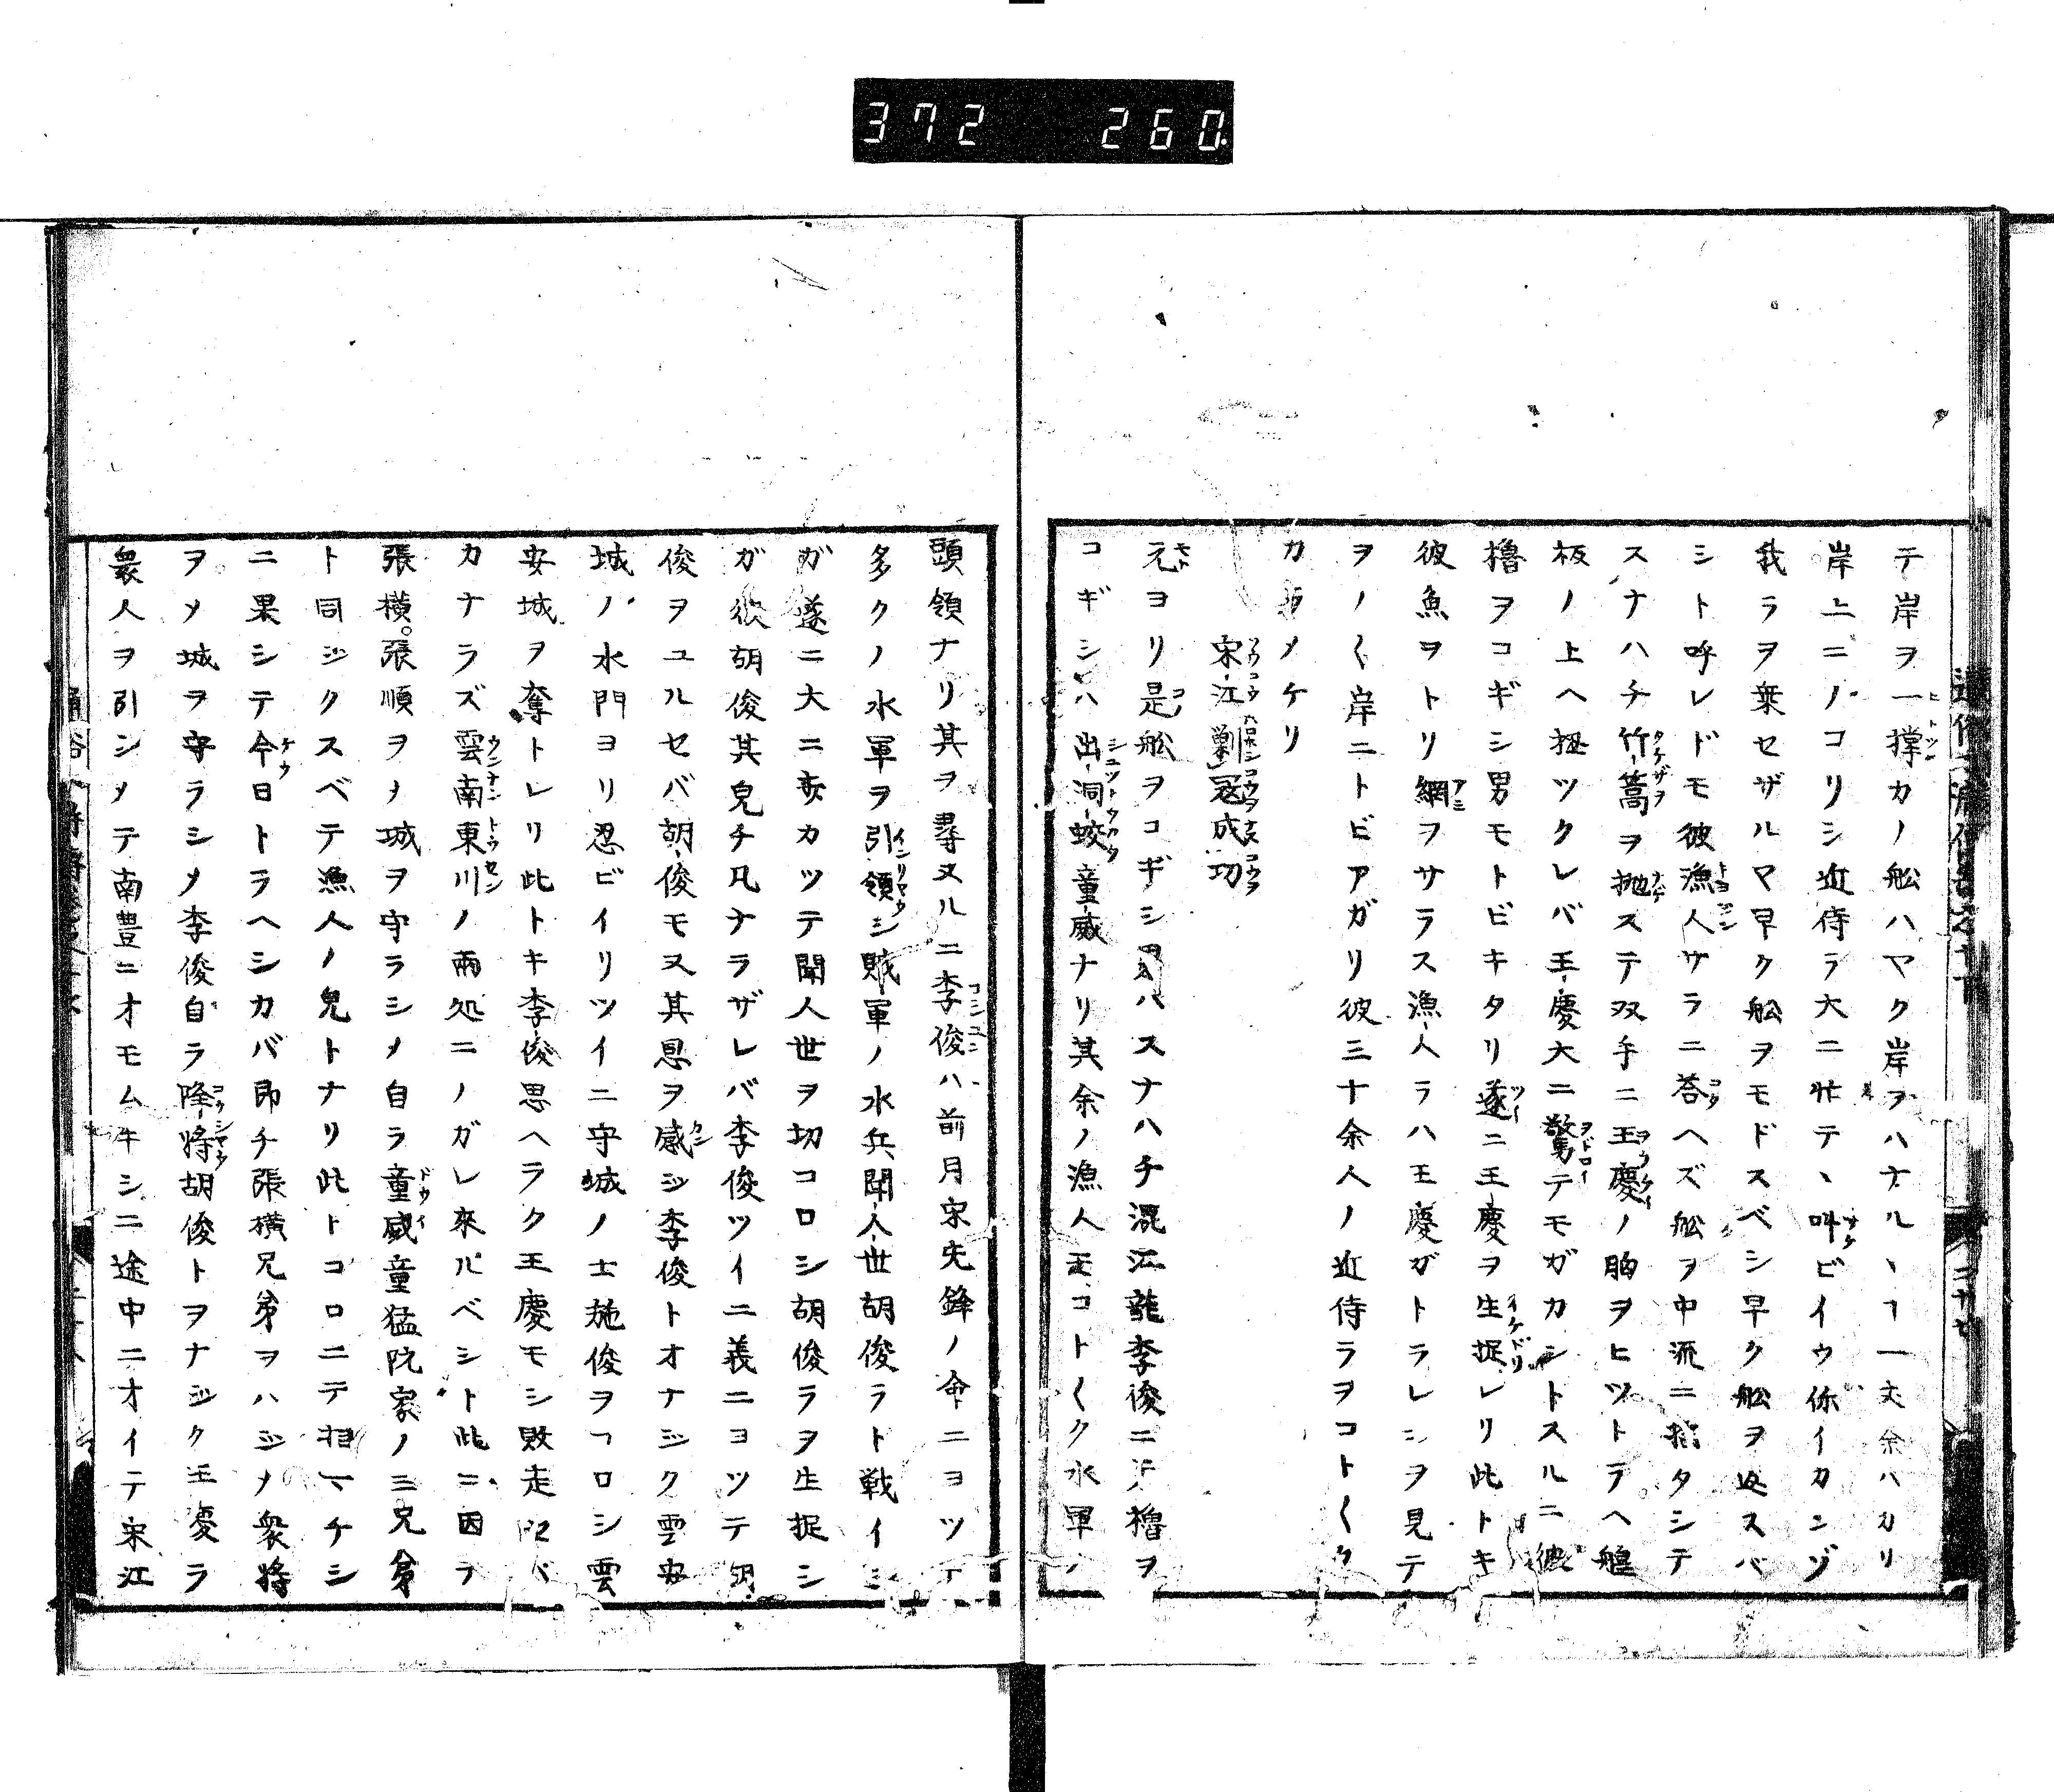 372 260
テ岸ヲ一撑カノ舩ハヤク岸ヲハナルヽヿ一丈余ハカリ
岸上ニノコリシ近侍ラ大ニ忙テヽ叫ビイウ你イカンゾ
我ラヲ乗セザルマ早ク舩ヲモドスベシ早ク舩ヲ返スバ
シト呼レドモ彼漁人サラニ荅ヘズ舩ヲ中流ニ撑タシテ
スナハチ竹篙ヲ抛ステ双手ニ王慶ノ胸ヲヒツトラヘ艎
板ノ上ヘ掇ツクレバ王慶大ニ驚テモガカントスルニ彼
櫓ヲコギシ男モトビキタリ遂ニ王慶ヲ生捉レリ此トキ
彼魚ヲトリ網ヲサラス漁人ラハ王慶ガトラレシヲ見テ
ヲノ〱岸ニトビアガリ彼三十余人ノ近侍ラヲコト〱ク
カラメケリ
宋江剿冦成功
元ヨリ是舩ヲコギシ男ハスナハチ混江龍李俊ニテ櫓ヲ
コギシハ出洞蛟童威ナリ其余ノ漁人モコト〱ク水軍ノ
頭領ナリ其ヲ尋ヌルニ李俊ハ前月宋先鋒ノ命ニヨツテ
多クノ水軍ヲ引領シ賊軍ノ水兵聞人世胡俊ラト戦イシ
ガ遂ニ大ニ克カツテ聞人世ヲ切コロシ胡俊ラヲ生捉シ
ガ彼胡俊其皃チ凡ナラザレバ李俊ツイニ義ニヨツテ胡
俊ヲユルセバ胡俊モ又其恩ヲ感ジ李俊トオナジク雲安
城ノ水門ヨリ忍ビイリツイニ守城ノ士施俊ヲコロシ雲
安城ヲ奪トレリ此トキ李俊思ヘラク王慶モシ敗走セバ
カナラズ雲南東川ノ兩処ニノガレ來ルベシト此ニ因テ
張橫。張順ヲメ城ヲ守ラシメ自ラ童威童猛阮家ノ三兄弟
ト同ジクスベテ漁人ノ皃トナリ此トコロニテ相マチシ
ニ果シテ今日トラヘシカバ即チ張横兄弟ヲハジメ衆將
ヲメ城ヲ守ラシメ李俊自ラ降將胡俊トヲナジク王慶ラ
衆人ヲ引シメテ南豊ニオモムキシニ途中ニオイテ宋江